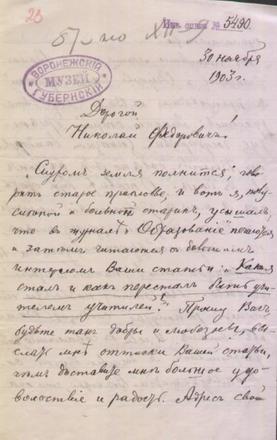 23
№ 5480.
ВОРОНЕЖСКІЙ
МУЗЕЙ
ГУБЕРНСКІЙ
30 ноября
1903 г.
Дорогой
Николай Ѳедоровичъ!
Слухомъ земля полнится, гово-
ритъ старое и вотъ я,
и больной старикъ, услышалъ
что въ журналѣ Образованіе
и затѣмъ читаются съ
интересомъ Ваши статьи: „Какъ я
сталъ и какъ пересталъ быть учи-
телемъ учителей“. Прошу Васъ
будьте такъ добры и любезны, вы-
слать мнѣ оттиски Вашей статьи,
чѣмъ доставите мнѣ большое удо-
вольствіе и радость. Адресъ свой